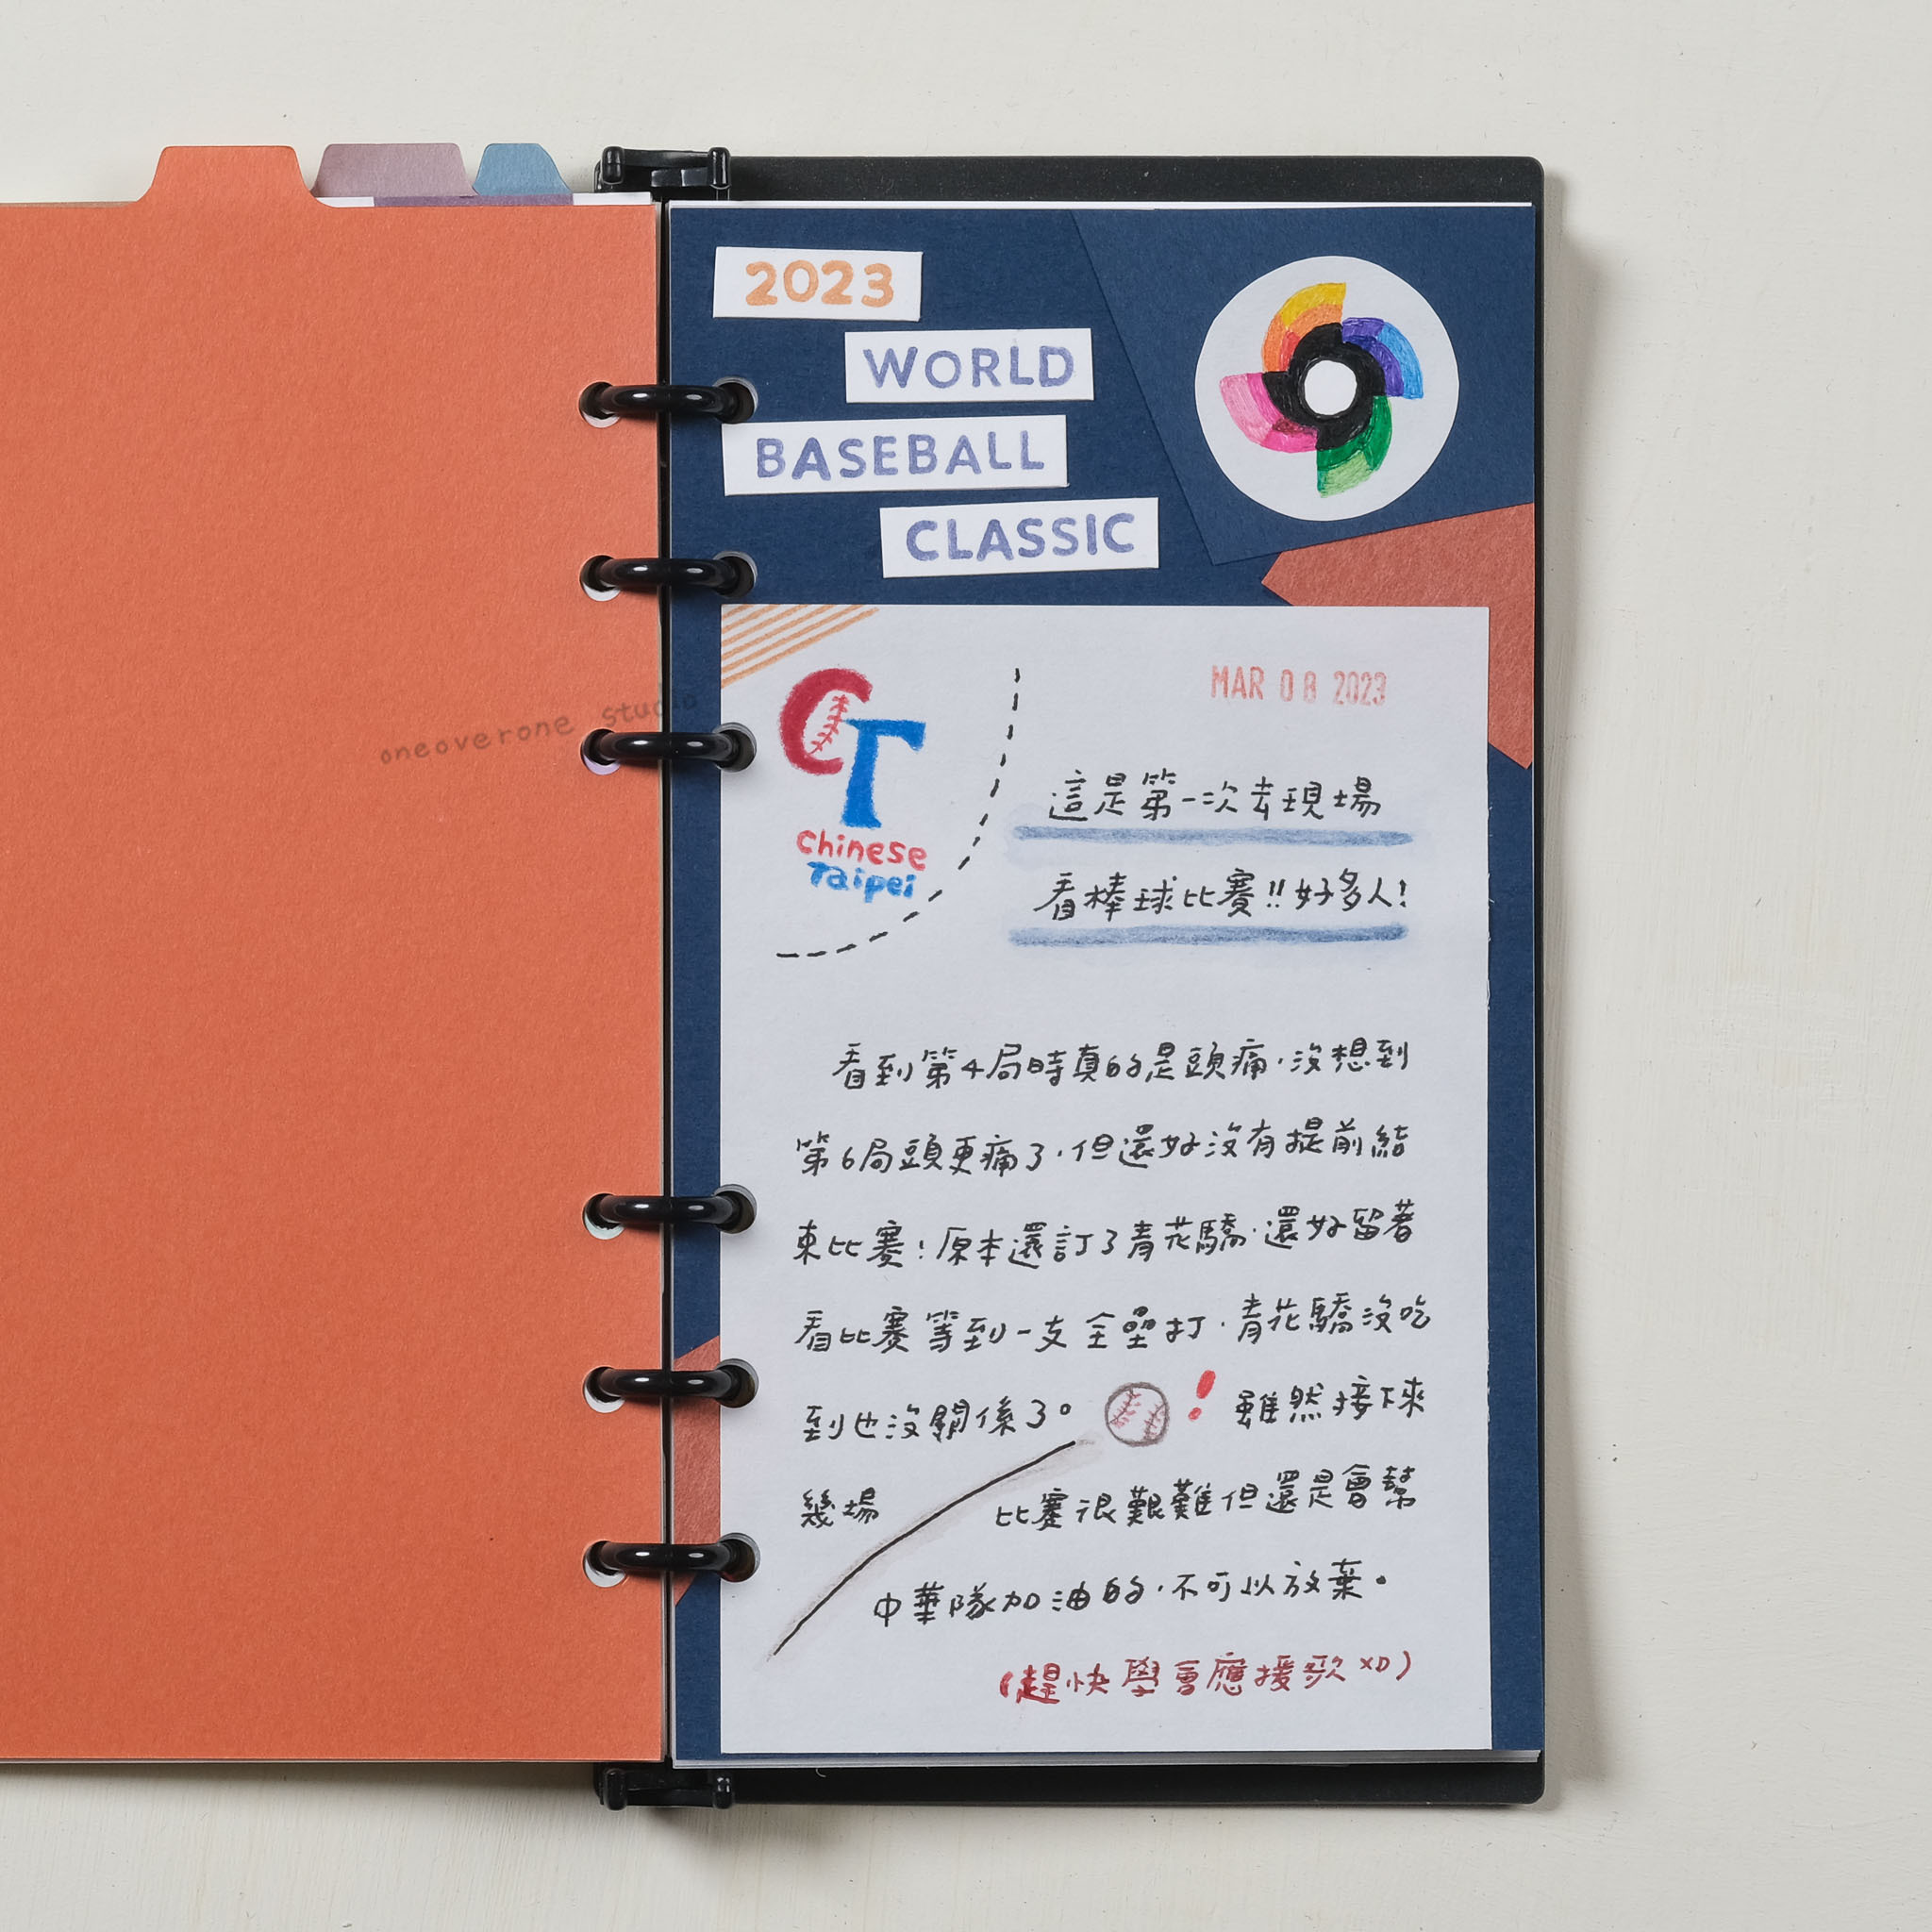 2023
WORLD
BASEBALL
CLASSIC
oneoverone studio
CT
Chinese
Taipei
MAR 08 2023
這是第一次去現場
看棒球比賽!!好多人!
看到第4局時真的是頭痛,沒想到
第6局頭更痛了,但還好沒有提前結
束比賽!原本還訂了青花驕,還好留著
看比賽等到一支全壘打,青花驕沒吃
到也沒關係了。! 雖然接下來
幾場 比賽很艱難但還是會幫
中華隊加油的,不可以放棄。
(趕快學會應援歌XD)